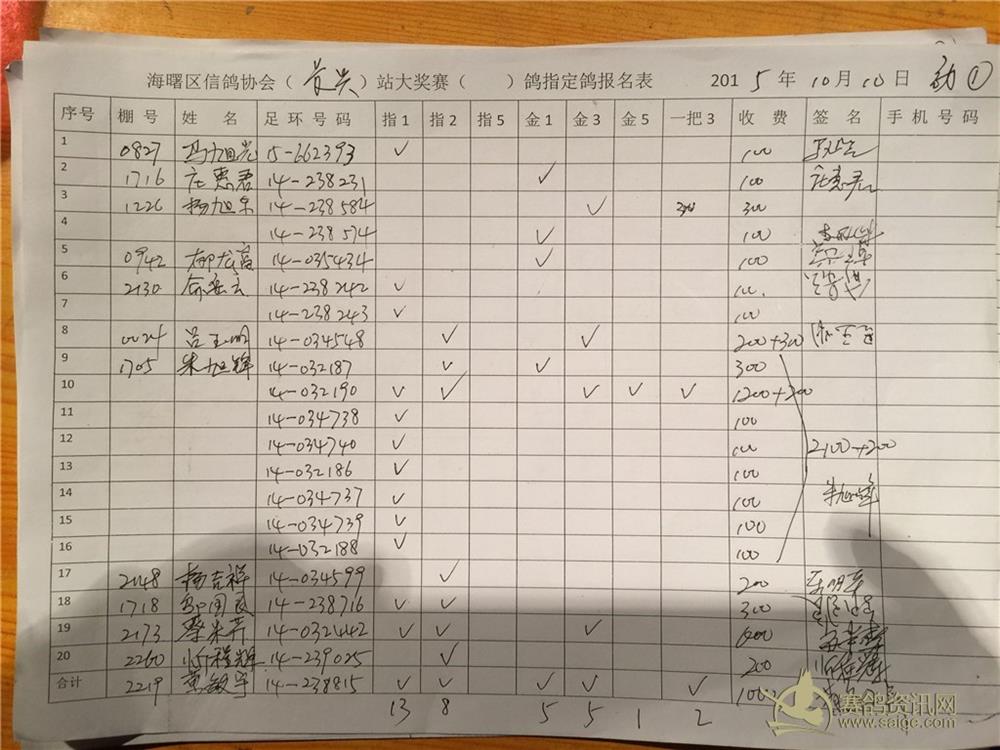 海曙区信鸽协会（长兴）站大奖赛（ ）鸽指定鸽报名表 2015年10月10日 ①
序号 棚号 姓名 足环号码 指1 指2 指5 金1 金3 金5 一把3 收费 签名 手机号码
1 0827 冯旭光 15-662393 ✓ 100
2 1716 庄惠君 14-238231 ✓ 100 庄惠君
3 1226 杨旭东 14-238584 ✓ 300 300
4 14-238574 ✓ 100
5 0942 14-035434 ✓ 100
6 2130 14-238242 ✓ 100
7 14-238243 ✓ 100
8 0024 吕玉明 14-034548 ✓ ✓ 200+300
9 1705 朱旭辉 14-032187 ✓ ✓ 300
10 14-032190 ✓ ✓ ✓ ✓ ✓ 1200+300
11 14-034738 ✓ 100
12 14-034740 ✓ 100 2100+300
13 14-032186 ✓ 100
14 14-034737 ✓ 100
15 14-034739 ✓ 100
16 14-032188 ✓ 100
17 2148 杨吉祥 14-034599 ✓ 200
18 1718 14-238716 ✓ ✓ 300
19 2173 14-032442 ✓ ✓ ✓ 600
20 2260 14-239025 ✓ 200
合计 2219 黄敏宇 14-238815 ✓ ✓ ✓ ✓ ✓ 1000
13 8 5 5 1 2
赛鸽资讯网
www.saigc.com